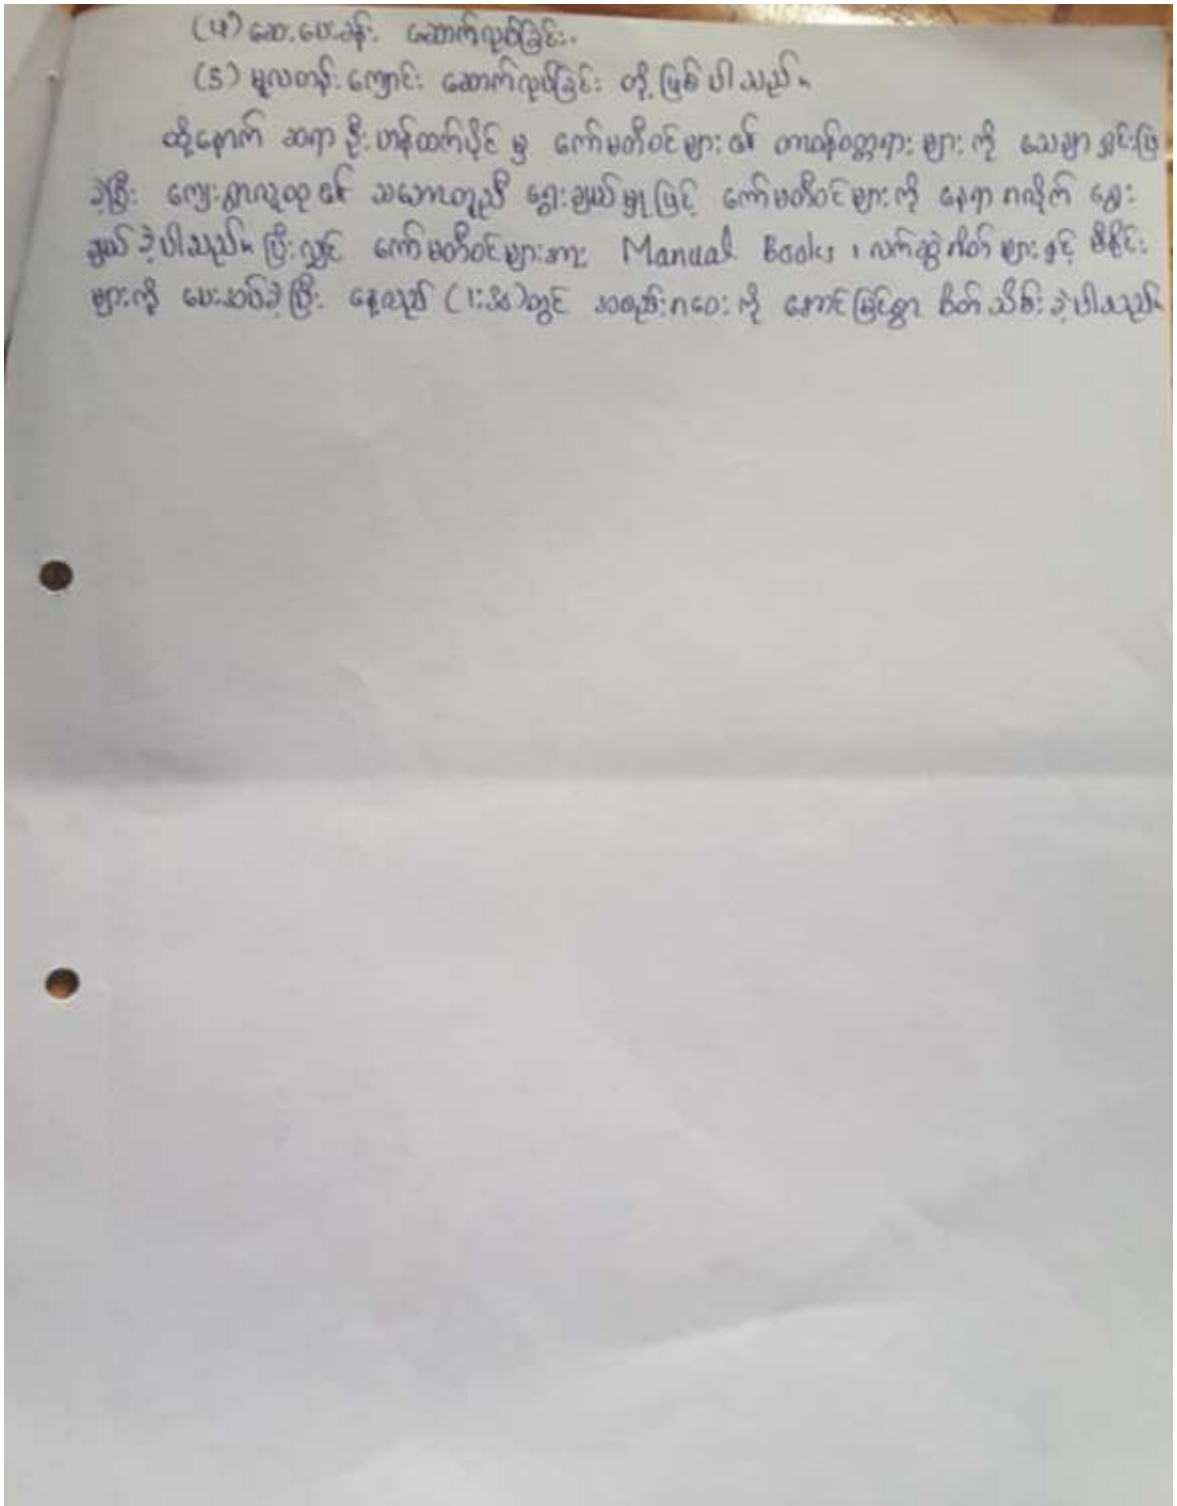 (4) ဆေးပေးခန်း ဆောက်လုပ်ခြင်း၊
(5) မူလတန်းကျောင်း ဆောက်လုပ်ခြင်း တို့ ဖြစ်ပါသည်။
ထို့နောက် ဆရာ ဦးဟန်ထက်ပိုင် မှ ကော်မတီဝင်များ ၏ တာဝန်ဝတ္တရား များ ကို သေချာ ရှင်းပြ
ခဲ့ပြီး ကျေးရွာလူထု ၏ သဘောတူညီ ရွေးချယ်မှု ဖြင့် ကော်မတီဝင်များ ကို နေရာ လိုက် ရွေး
ချယ် ခဲ့ပါသည်။ ပြီးလျှင် ကော်မတီဝင်များအား Manual Books ၊ လက်ဆွဲအိတ် များ နှင့် ဖိုင်
များကို ပေးအပ်ခဲ့ပြီး နေ့လည် (1:30) တွင် အစည်းအဝေး ကို အောင်မြင်စွာ ပိတ်သိမ်း ခဲ့ပါသည်။